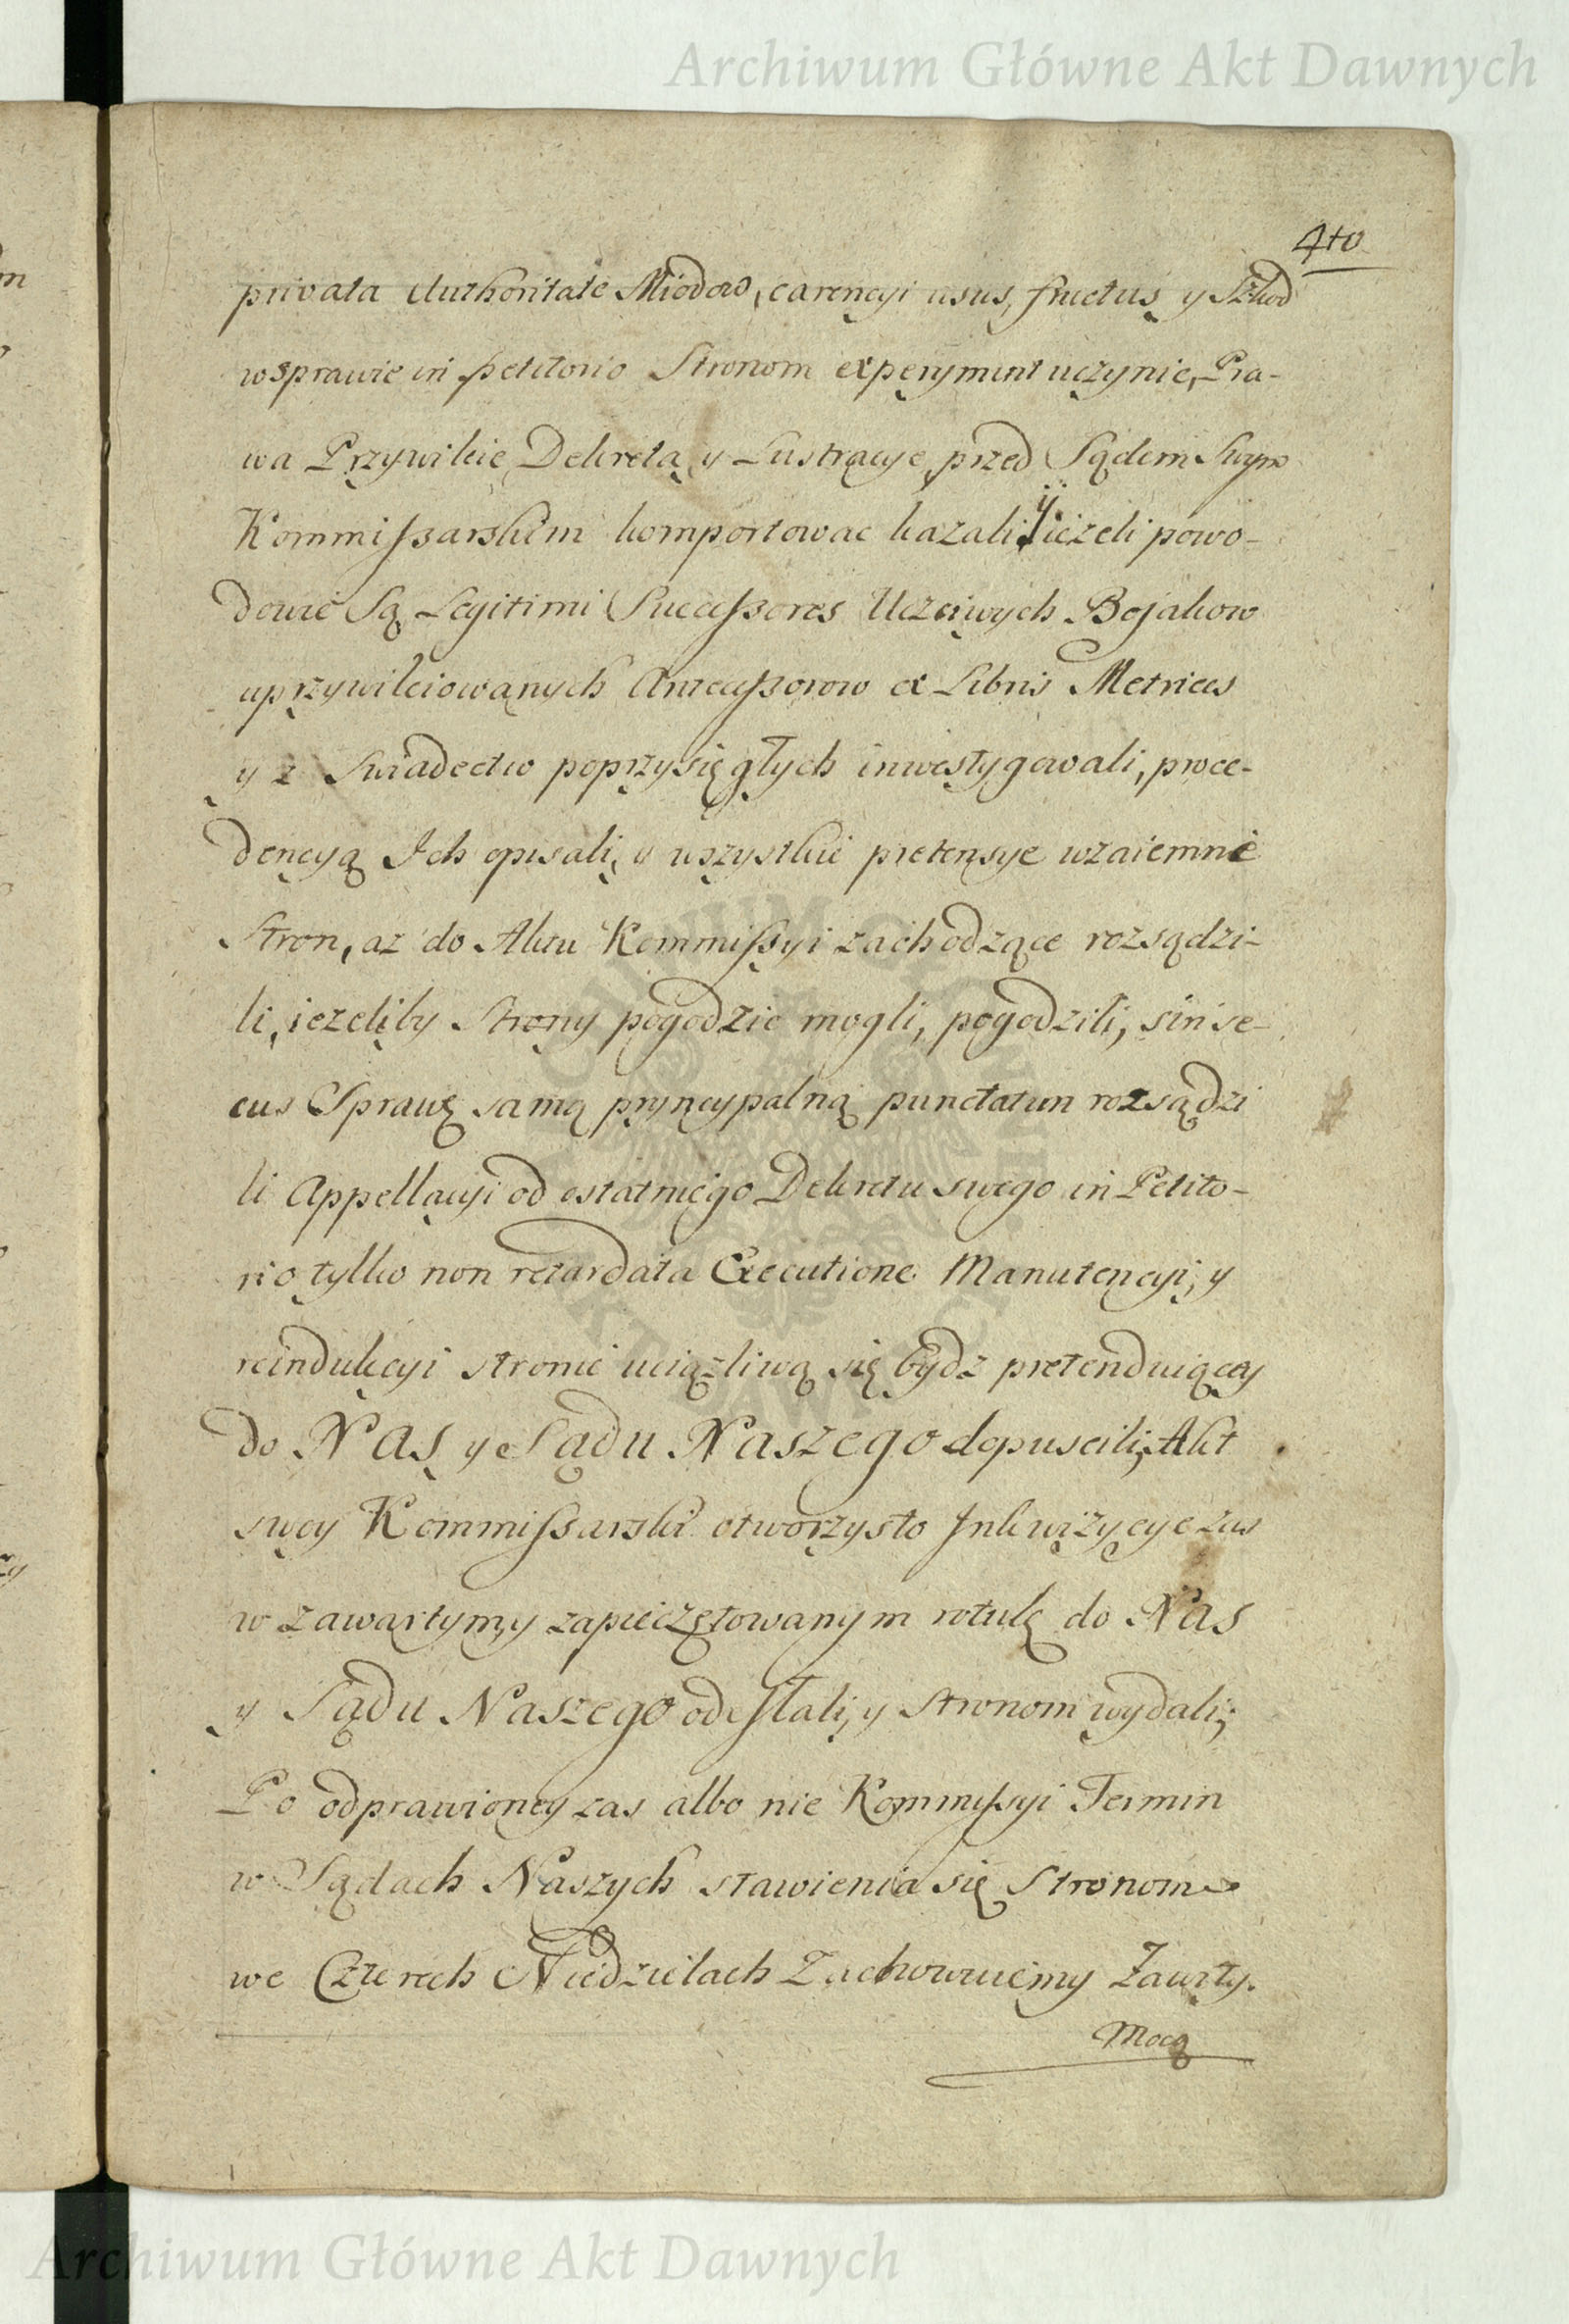 Archiwum Główne Akt Dawnych
4to
privata Authoritate Miodow, carencyi usus, fructus y Szkod
wsprawie in petitorio Stronom experyment uczynic, Pra-
wa Przywileie Dekreta, y Lustracye przed Sądem Swym
Kommisszarskim komportowac kazali, ÿ iezeli powo-
dowie Są Legitimi Successzores Uczciwych Bojakow
uprzywileiowanych Antecesszorow ex Libris Metrices
y z Swiadectw poprzysięgłych inwestygowali, proce-
dencyą Ich opisali, y wszystkie pretensye wzaiemnie
Stron, az do Aktu Kommissyi zachodzące rozsądzi-
li, iezeliby Strony pogodzic mogli, pogodzili, sin se-
cus Sprawę samą pryncypalną punctatim rozsądzi
li Appellacyi od ostatniego Dekretu swego in Petito-
rio tylko non retardata Executione Manutencyi, y
reindukcyi stronie uciązliwą się bydz pretenduiącey
do NAS y Sądu Naszego dopuscili, Akt
swey Kommisszarski otworzysto Inkwizycye zas
w zawartym, y zapieczętowanym rotulę do NAS
y Sądu Naszego odesłali, y stronom wydali;
Po odprawioney zas albo nie Kommissyi Termin
w Sądach Naszych stawienia się Stronom
we Czterech Niedzielach Zachowuiemy Zawity.
Mocą
Archiwum Główne Akt Dawnych